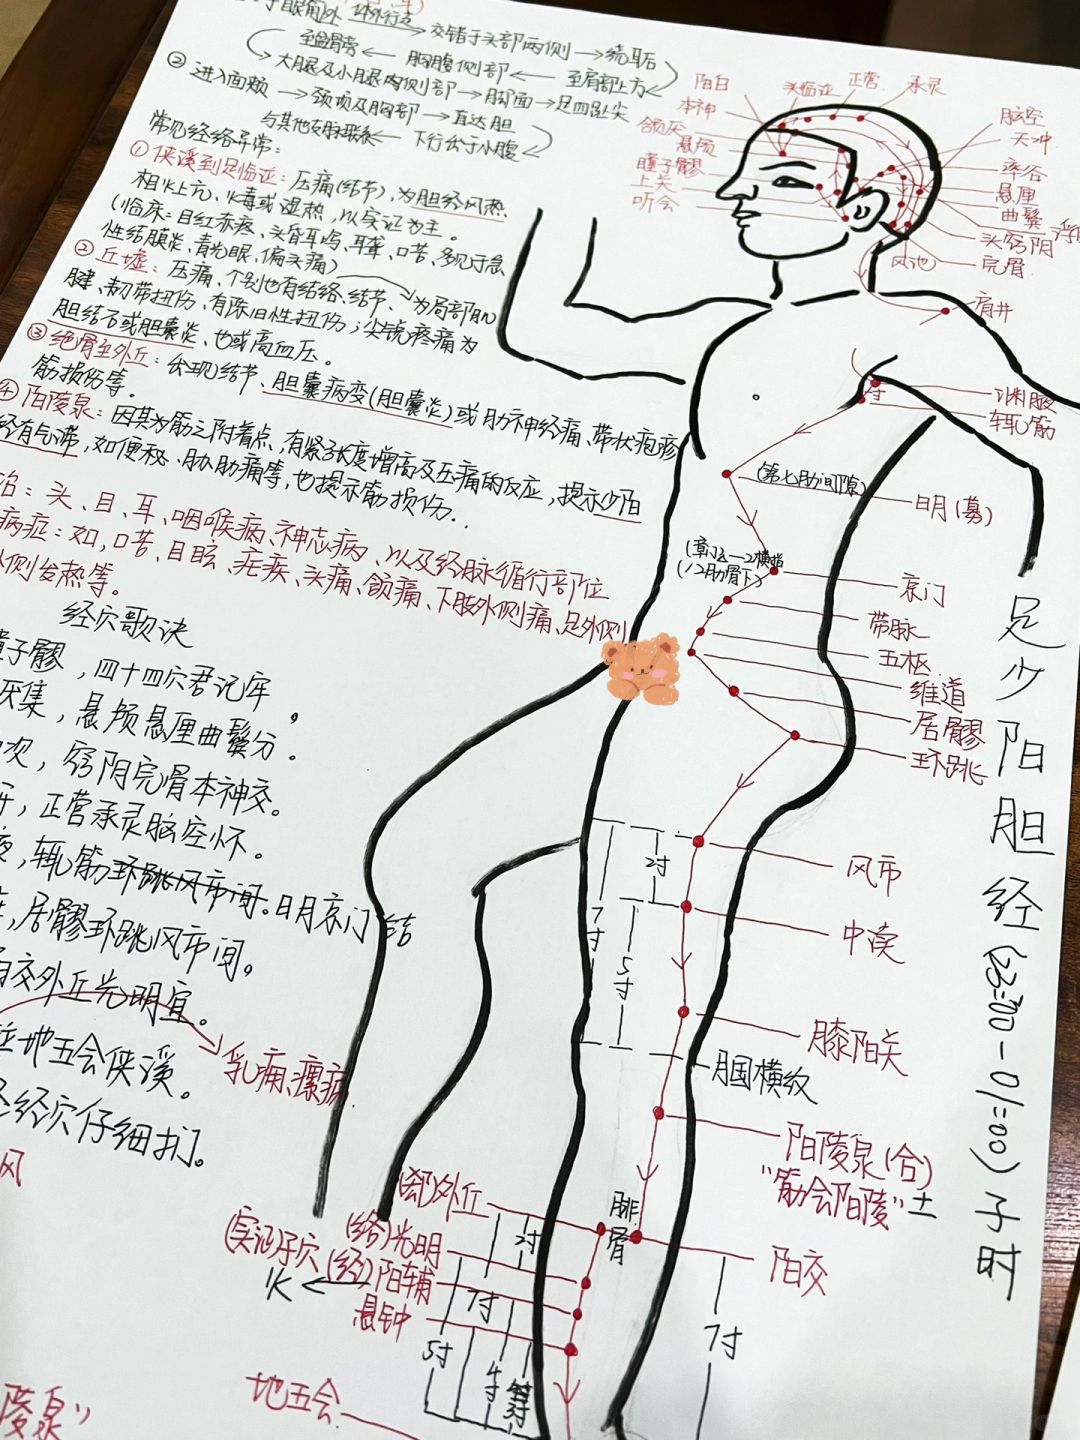 体外行走 → 交错于头部两侧 → 绕耳后
至髋骨旁 ← 胸腹侧部 ← 至肩部上方
大腿及小腿内侧部 → 脚面 → 足四趾尖
② 进入面颊 → 颈项及胸部 → 直达胆
与其他支脉联系 ← 下行公于小腹
常见经络异常：
① 侠溪到足临泣：压痛(结节)，为胆经风热
相火上亢、火毒或湿热，以实证为主。
(临床：目红赤疼、头昏耳鸣、耳聋、口苦、多见于急
性结膜炎、青光眼、偏头痛)
② 丘墟：压痛、个别也有结络、结节、为局部肌
腱、韧带扭伤、有陈旧性扭伤；尖锐疼痛为
胆结石或胆囊炎、也或高血压。
③ 绝骨至外丘：出现结节、胆囊病变(胆囊炎)或肋神经痛、带状疱疹
筋损伤等。
④ 阳陵泉：因其为筋之附着点，有紧张度增高及压痛的反应，提示少阳
经有气滞，如便秘、胁肋痛等，也提示筋损伤..
治：头、目、耳、咽喉病、神志病、以及经脉循行部位
病症：如，口苦、目眩、疟疾、头痛、颔痛、下肢外侧痛、足外侧
侧发热等。
经穴歌诀
子髎，四十四穴君记牢，
厌集，悬颅悬厘曲鬓分。
次，窍阴完骨本神交。
，正营承灵脑空怀。
，辄筋环跳风市间。日月京门结
，居髎环跳风市间。
交外丘光明宜。
泣地五会侠溪。
经穴仔细扪。
乳痈、瘰疬
风
陵泉"
阳白
本神
颔厌
悬颅
瞳子髎
上关
听会
头临泣
正营
承灵
脑空
天冲
率谷
悬厘
曲鬓
头窍阴
完骨
风池
肩井
寸
渊腋
辄筋
(第七肋间隙)
日月(募)
(章门这一2横指
(12肋骨下)
京门
带脉
五枢
维道
居髎
环跳
2寸
7寸
5寸
风市
中渎
膝阳关
腘横纹
阳陵泉(合)
"筋会阳陵" 土
腓骨
阳交
7寸
(郄)外丘
(络)光明
(实证)子穴 (经)阳辅
火
悬钟
2寸
7寸
5寸
4寸
地五会
足少阳胆经(23:00-01:00)子时